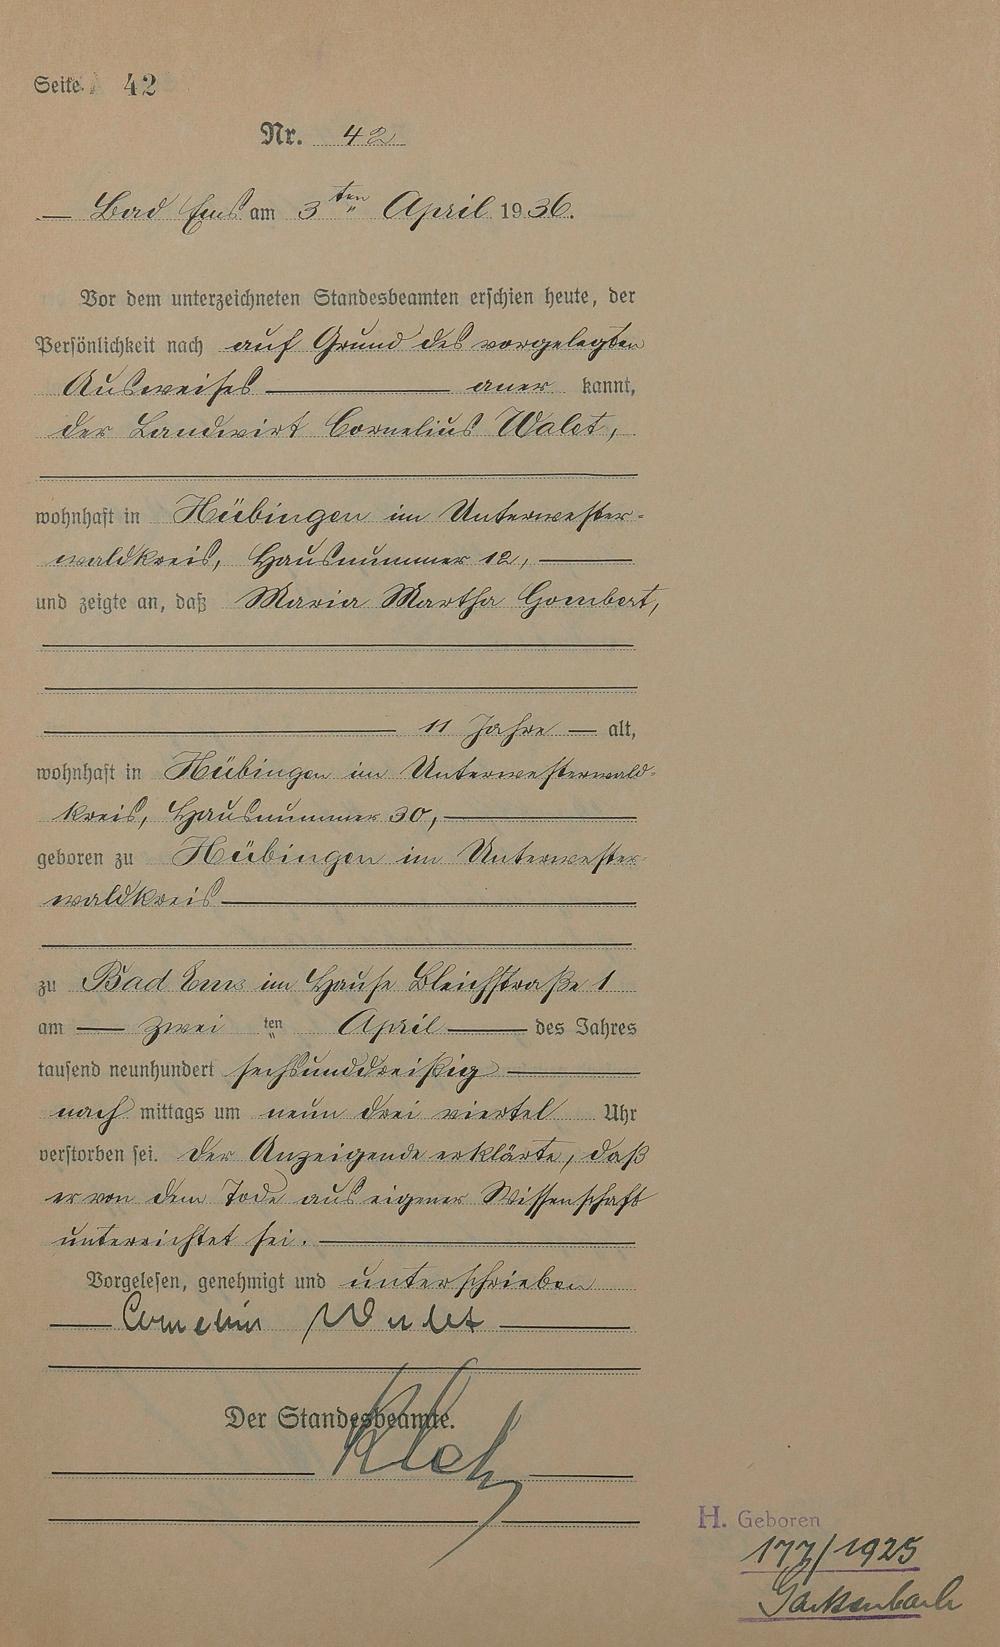 Seite 42
Nr. 42
Bad Ems am 3ten April 1936.
Vor dem unterzeichneten Standesbeamten erschien heute, der
Persönlichkeit nach auf Grund des vorgelegten
Ausweises aner kannt,
der Landwirt Cornelius Walet,
wohnhaft in Hübingen im Unterwester-
waldkreis, Hausnummer 12,
und zeigte an, daß Maria Martha Gombert,
11 Jahre alt,
wohnhaft in Hübingen im Unterwesterwald-
kreis, Hausnummer 30,
geboren zu Hübingen im Unterwester-
waldkreis
zu Bad Ems im Hause Bleichstraße 1
am zwei ten April des Jahres
tausend neunhundert sechsunddreißig
nach mittags um neun drei viertel Uhr
verstorben sei. Der Anzeigende erklärte, daß
er von dem Tode aus eigener Wissenschaft
unterrichtet sei.
Vorgelesen, genehmigt und unterschrieben
Cornelius Walet
Der Standesbeamte.
H. Geboren
177/1925
Gackenbach